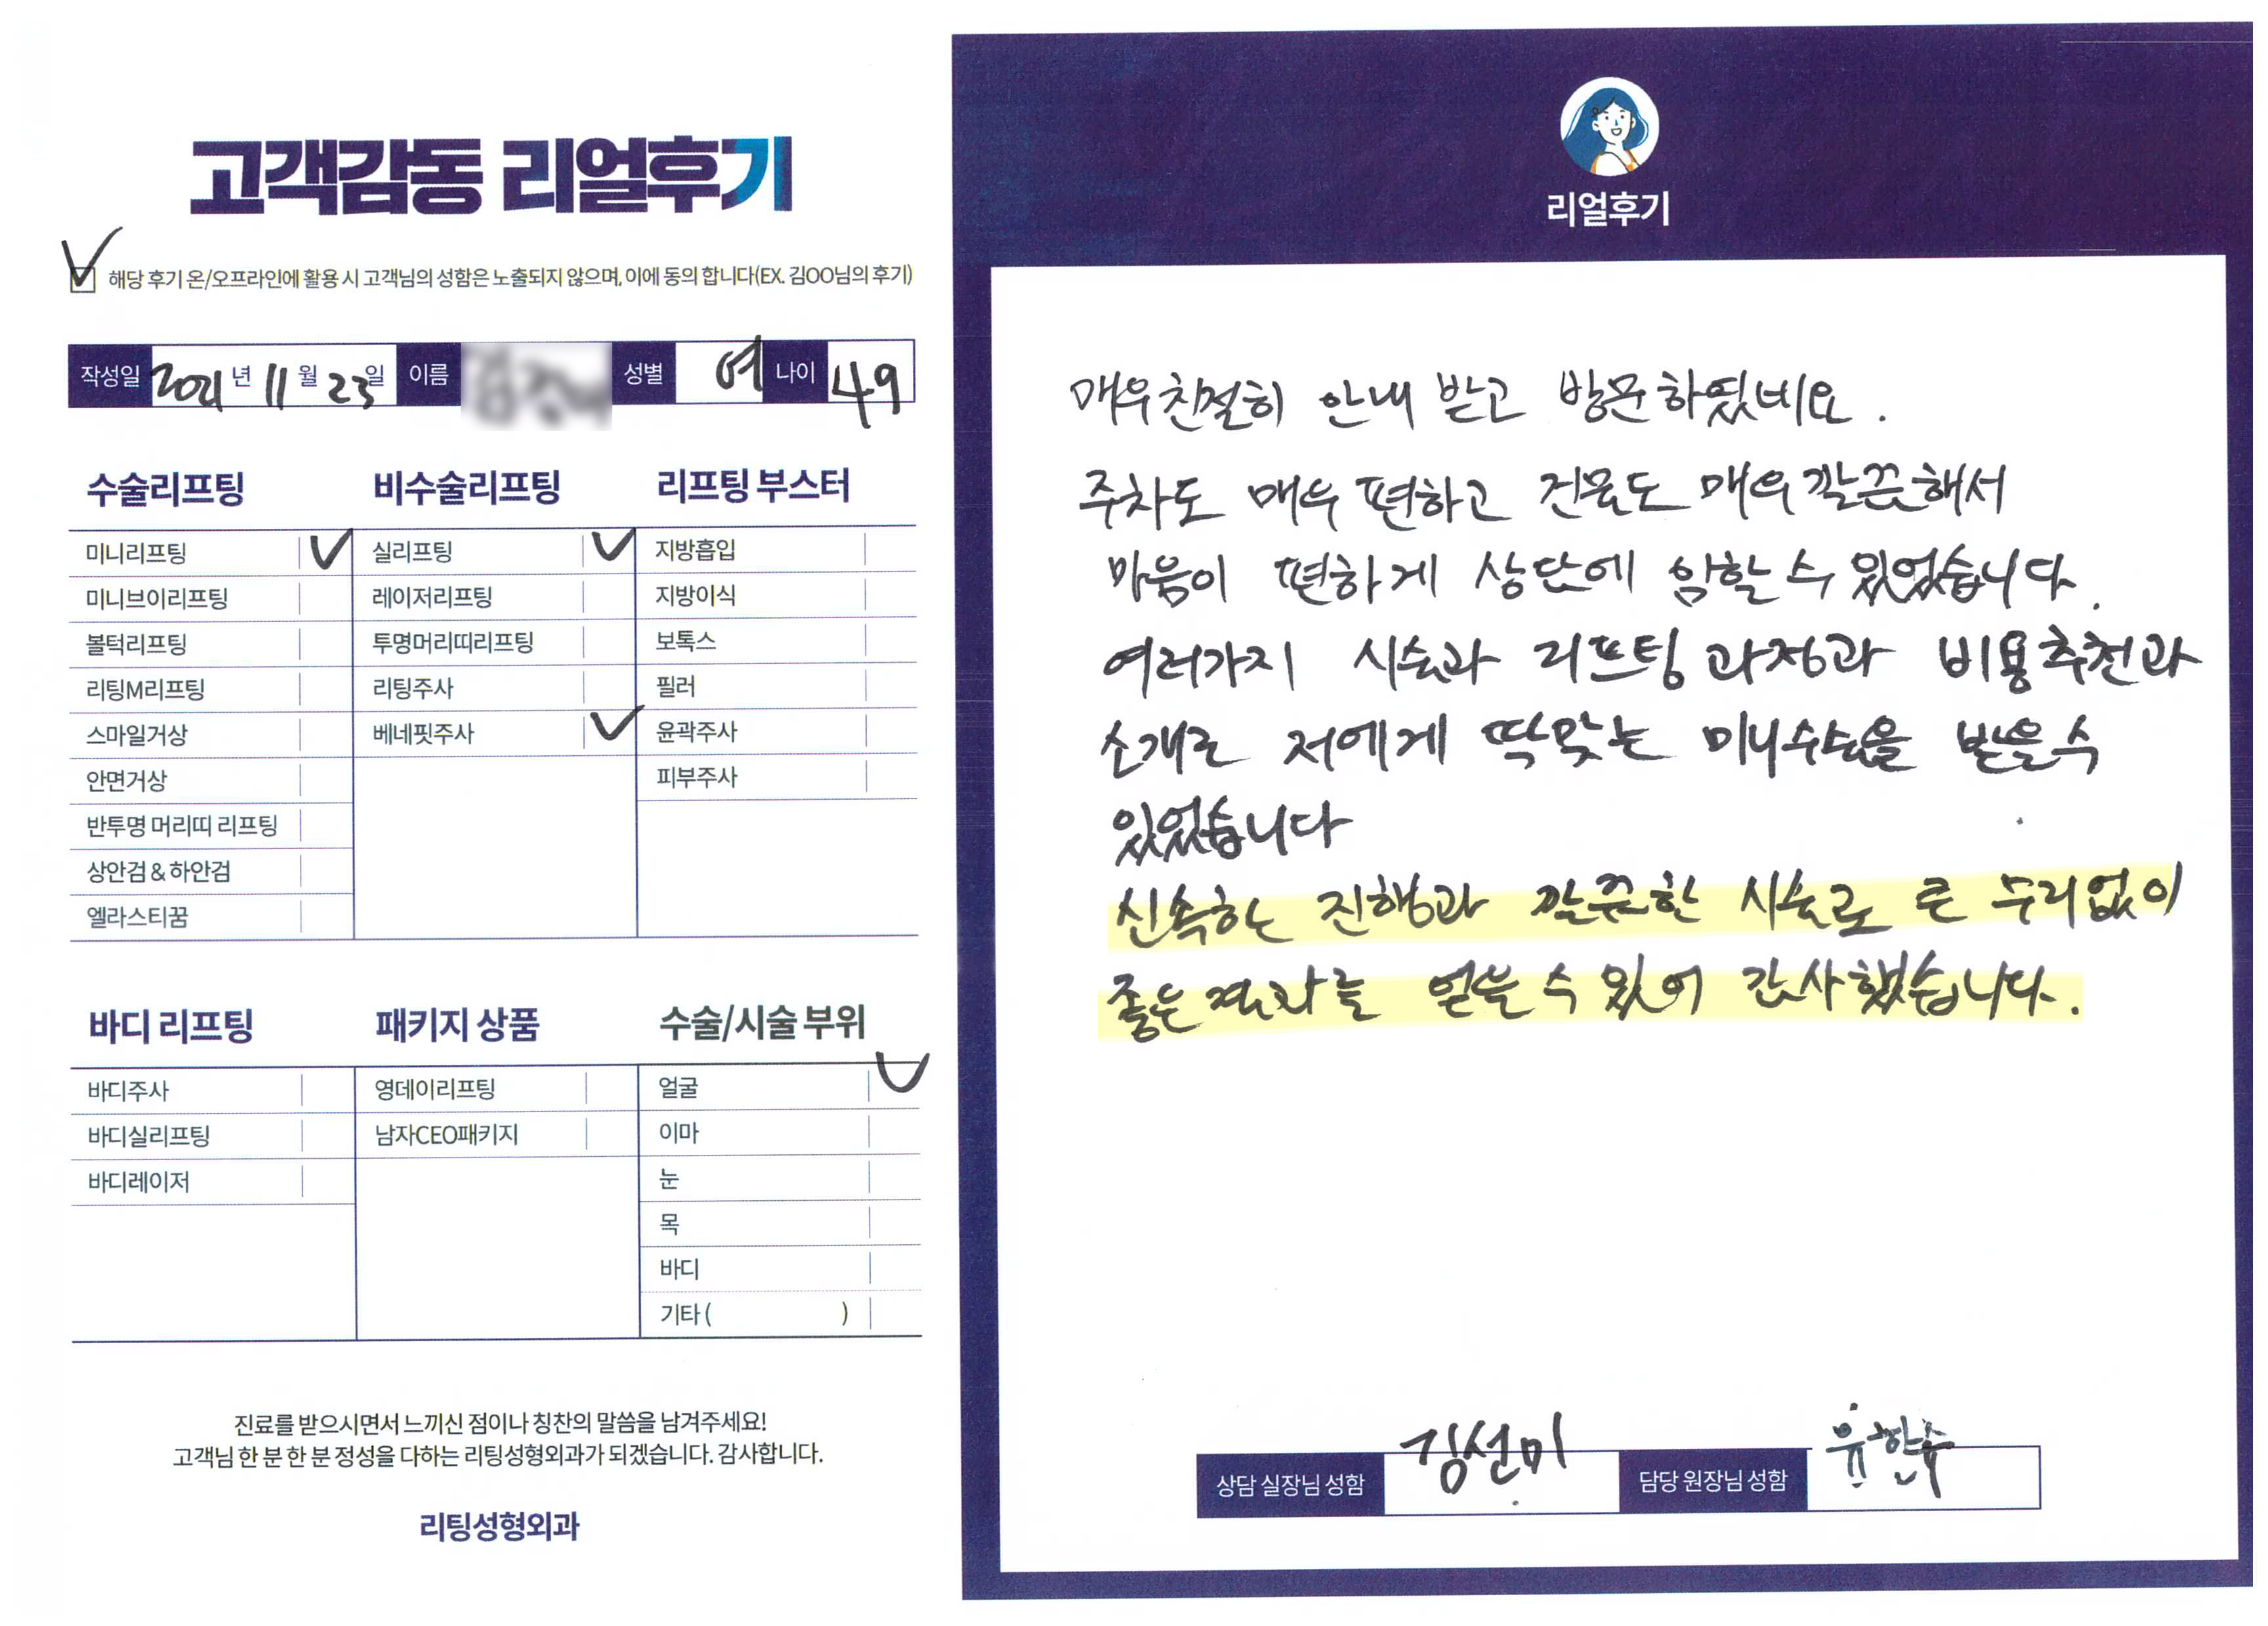 고객감동 리얼후기
해당 후기 온/오프라인에 활용 시 고객님의 성함은 노출되지 않으며, 이에 동의 합니다(EX. 김OO님의 후기)
작성일 2021 년 11 월 23 일 이름 성별 여 나이 49
수술리프팅
미니리프팅
미니브이리프팅
볼턱리프팅
리팅M리프팅
스마일거상
안면거상
반투명 머리띠 리프팅
상안검 & 하안검
엘라스티꿈
비수술리프팅
실리프팅
레이저리프팅
투명머리띠리프팅
리팅주사
베네핏주사
리프팅 부스터
지방흡입
지방이식
보톡스
필러
윤곽주사
피부주사
바디 리프팅
바디주사
바디실리프팅
바디레이저
패키지 상품
영데이리프팅
남자CEO패키지
수술/시술 부위
얼굴
이마
눈
목
바디
기타 ( )
진료를 받으시면서 느끼신 점이나 칭찬의 말씀을 남겨주세요!
고객님 한 분 한 분 정성을 다하는 리팅성형외과가 되겠습니다. 감사합니다.
리팅성형외과
리얼후기
매우 친절히 안내 받고 방문하였네요.
주차도 매우 편하고 건물도 매우 깔끔해서
마음이 편하게 상담에 임할 수 있었습니다.
여러가지 시술과 리프팅 과정과 비용추천과
소개로 저에게 딱맞는 미니수술을 받을 수
있었습니다
신속하는 진행과 깔끔한 시술로 큰 무리없이
좋은 결과를 얻을 수 있어 감사했습니다.
상담 실장님 성함 김선미 담당 원장님 성함 유한수